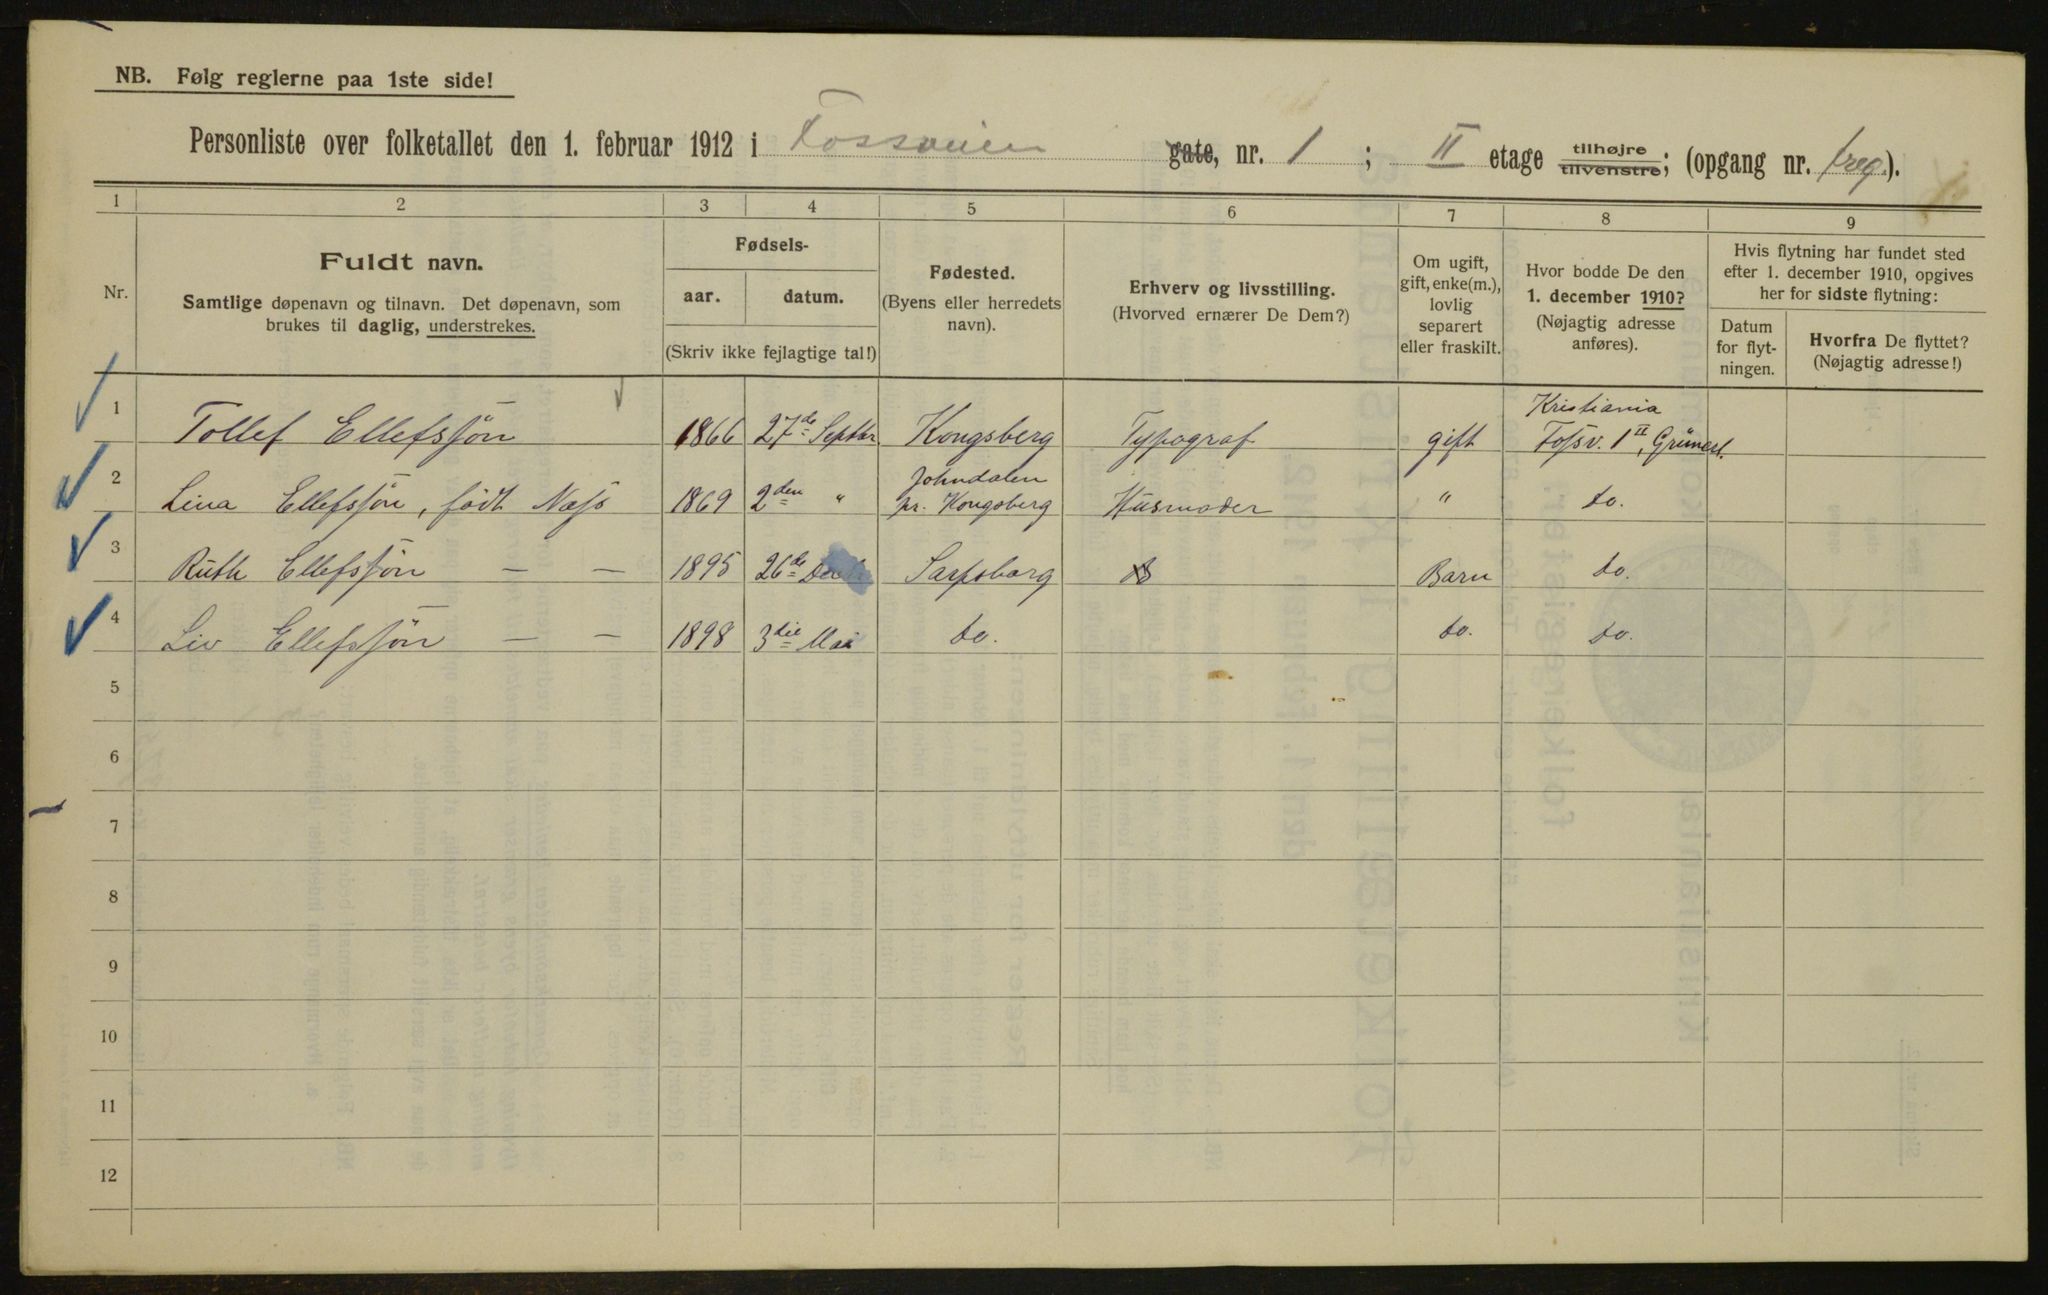 NB. Følg reglerne paa 1ste side!
Personliste over folketallet den 1. februar 1912 i Fossveien gate, nr. 1 ; II etage tilhøjre tilvenstre; (opgang nr. ).
1 2 3 4 5 6 7 8 9
Nr.
Fuldt navn.
Samtlige døpenavn og tilnavn. Det døpenavn, som
brukes til daglig, understrekes.
Fødsels-
aar. datum.
(Skriv ikke fejlagtige tal!)
Fødested.
(Byens eller herredets
navn).
Erhverv og livsstilling.
(Hvorved ernærer De Dem?)
Om ugift,
gift, enke(m.),
lovlig
separert
eller fraskilt.
Hvor bodde De den
1. december 1910?
(Nøjagtig adresse
anføres).
Hvis flytning har fundet sted
efter 1. december 1910, opgives
her for sidste flytning:
Datum
for flyt-
ningen.
Hvorfra De flyttet?
(Nøjagtig adresse!)
Kristiania
1 Tollef Ellefssøn 1866 27de Septbr Kongsberg Typograf gift Fossv. 1 II, Grünerl.
Johndalen
2 Lina Ellefssøn, født Næss 1869 2den " pr. Kongsberg Husmoder " do.
3 Ruth Ellefssøn — — 1895 26de Sarpsborg Barn do.
4 Liv Ellefssøn — — 1898 3die Mai do. do. do.
5
6
7
8
9
10
11
12